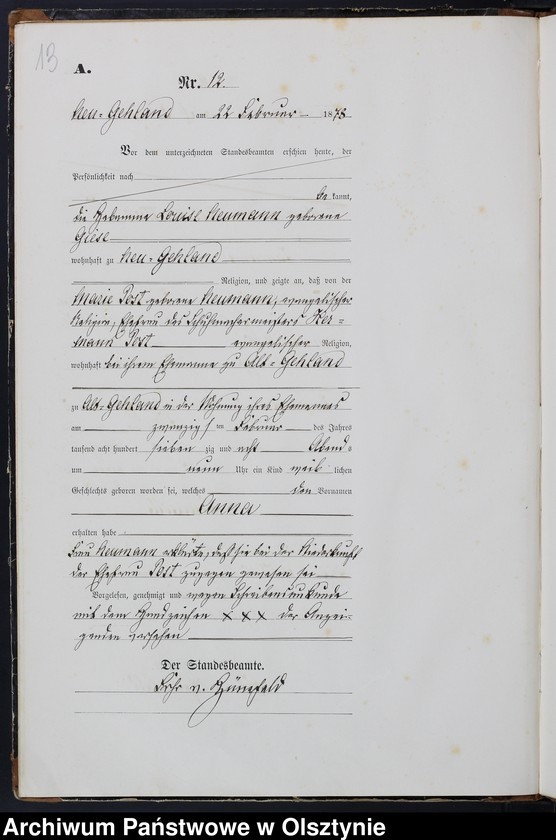 13
A.
Nr. 12.
Neu-Gehland am 22 Februar 1878
Vor dem unterzeichneten Standesbeamten erschien heute, der
Persönlichkeit nach
be kannt,
die Hebamme Louise Neumann geborene
Giese
wohnhaft zu Neu-Gehland
Religion, und zeigte an, daß von der
Marie Post geborene Neumann, evangelischer
Religion, Ehefrau des Schuhmachermeisters Her-
mann Post evangelischer Religion,
wohnhaft bei ihrem Ehemanne zu Alt-Gehland
zu Alt-Gehland in der Wohnung ihres Ehemannes
am zwanzigsten Februar des Jahres
tausend acht hundert sieben zig und acht Abends
um neun Uhr ein Kind weib lichen
Geschlechts geboren worden sei, welches den Vornamen
Anna
erhalten habe
Frau Neumann erklärte, daß sie bei der Niederkunft
der Ehefrau Post zugegen gewesen sei
Vorgelesen, genehmigt und wegen Schreibensunkunde
mit dem Handzeichen xxx der Anzei-
genden versehen
Der Standesbeamte.
Frhr v. Hünefeld
Archiwum Państwowe w Olsztynie